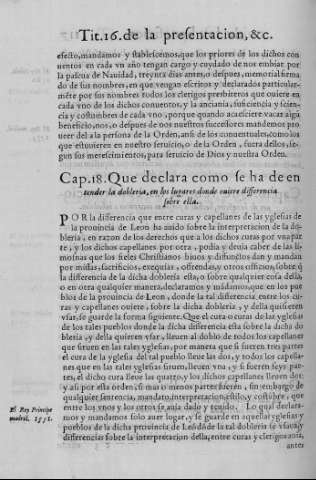 Tit.16. de la presentacion, &c.
efecto, mandamos y stablescemos, que los priores de los dichos con
uentos en cada vn año tengan cargo y cuydado de nos embiar por
la pascua de Nauidad, treynta dias antes, o despues, memorial firma
do de sus nombres, en que vengan escritos y declarados particular-
mẽte por sus nombres todos los clerigos presbiteros que ouiere en
cada vno de los dichos conuentos, y la anciania, suficiencia y scien-
cia y costumbres de cada vno, porque quando acaesciere vacar algũ
beneficio, nos, o despues de nos nuestros successores mandemos pro
ueer a vna persona de la Orden, ansi de los conuentuales, como los
que estuuieren en nuestro seruicio, o de la Orden, fuera dellos, se-
gun sus merescimientos, para seruicio de Dios y nuestra Orden.
Cap.18. Que declara como se ha de en
tender la dobleria, en los lugares donde ouiere differencia
sobre ella.
POR la differencia que entre curas y capellanes de las yglesias de
la prouincia de Leon ha auido sobre la interpretacion de la do
bleria, en razon de los derechos que a los dichos curas por vna par
te, y los dichos capellanes por otra, podia y deuia caber de las li-
mosnas que los fieles Christianos biuos y difunctos dan y mandan
por missas, sacrificios, exequias, offrendas, y otros officios, sobre q̃
la differencia de la dicha dobleria esta, o sobre qualquier cosa della,
o en otra qualquier manera, declaramos y mãdamos, que en los pue
blos de la prouincia de Leon, donde la tal differencia, entre los cu-
ras y capellanes ouiere, sobre la dicha dobleria, y della quisieren
vsar, se guarde la forma siguiente. Que el cura o curas de las yglesias
de los tales pueblos donde la dicha differencia esta sobre la dicha do
bleria, y della quieren vsar, lleuen al doblo de todos los capellanes
que siruen en las tales yglesias, por manera que si fueren tres partes
el cura de la yglesia del tal pueblo lleue las dos, y todos los capella-
nes que en las tales yglesias siruen, lleuen vna, y si fueren seys par-
tes, el dicho cura lleue las quatro, y los dichos capellanes lleuen dos
y assi por esta orden, si mas o menos partes fueren, sin embargo de
qualquier sentencia, mandato, interpretacion, estilo, y costũbre, que
entre los vnos y los otros se aya dado y tenido. Lo qual declara-
mos y mandamos solo auer lugar, y se guarde en aquellas yglesias y
pueblos de la dicha prouincia de Leõ, dõde la tal dobleria se vsaua, y
differencias sobre la interpretacion della, entre curas y clerigos auia,
antes
El Rey Principe
madrid. 1551.